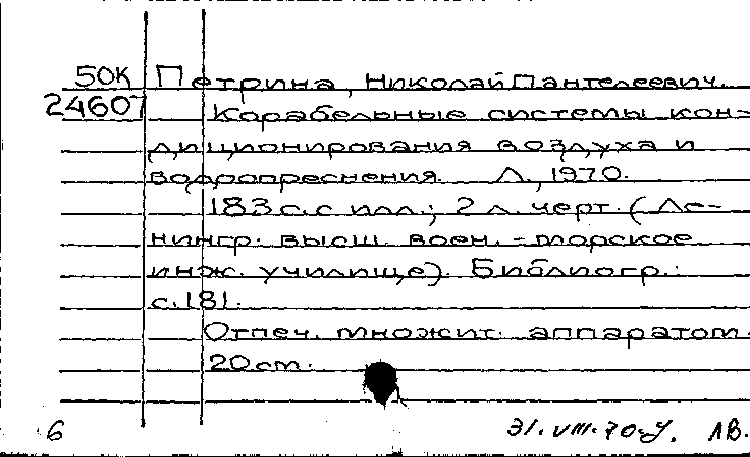 50К Петрина, Николай Пантелеевич.
24607 Корабельные системы кон-
диционирования воздуха и
водроопреснения. Л., 1970.
183 с. с илл.; 2 л. черт. (Ле-
нингр. высш. воен.-морское
инж. училище). Библиогр.:
с. 181.
Отпеч. множит. аппаратом.
20 см.
6 31.VIII.70. ЛВ.